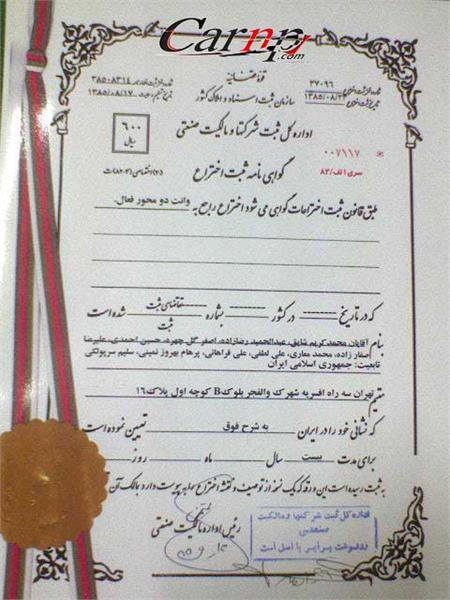 Carnp.com
قوه قضائیه
سازمان ثبت اسناد و املاک کشور
۳۷۰۹۶
۱۳۸۵/۰۸/۲۴
۳۸۵۰۸۳۱۴
۱۳۸۵/۰۸/۱۷
اداره کل ثبت شرکتها و مالکیت صنعتی
۶۰۰
ریال
۰۰۷۱۱۷
گواهی نامه ثبت اختراع
سری الف/۸۳
طبق قانون ثبت اختراعات گواهی می شود اختراع راجع به وانت دو محور فعال.
که در تاریخ در کشور بشماره تقاضای ثبت شده است
ثبت
بنام آقایان محمدکریم شایق، عبدالحمید رضازاده، اصغر گل چهره، حسین احمدی، علیرضا
صفار زاده، محمد معاری، علی لطفی، علی فراهانی، پرهام بهروز ثمینی، سلیم سرپولکی
تابعیت: جمهوری اسلامی ایران
مقیم تهران سه راه افسریه شهرک والفجر بلوک B کوچه اول پلاک ۱۶
که نشانی خود را در ایران به شرح فوق تعیین نموده است
برای مدت بیست سال ماه روز
به ثبت رسیده است این ورقه که یک نسخه از توصیف و نقشه اختراع بضمیمه پیوست دارد بمالک آن
رئیس اداره مالکیت صنعتی
اداره کل ثبت شرکتها و مالکیت
صنعتی
رونوشت برابر با اصل است